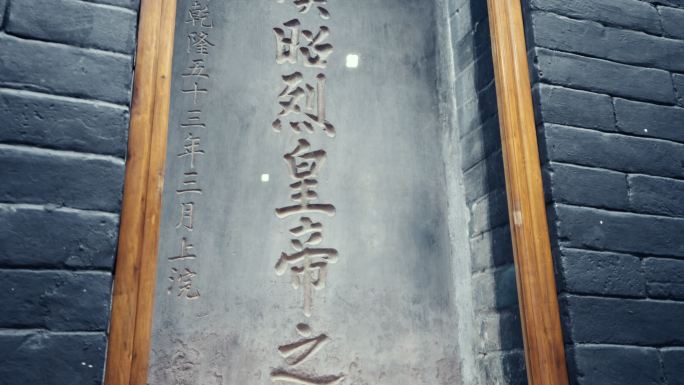 漢昭烈皇帝之
乾隆五十三年三月上浣